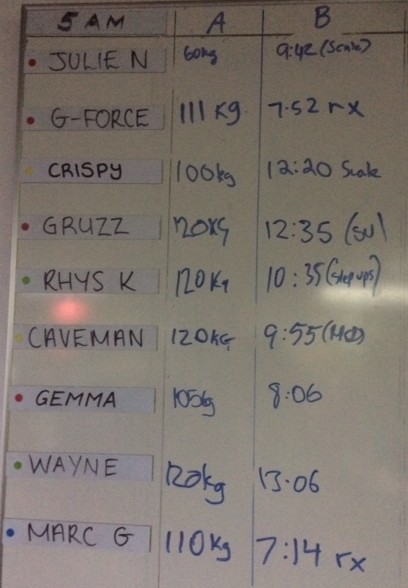 5 AM A B
JULIE N 60kg 9:42 (Scale)
G-FORCE 111 Kg 7.52 rx
CRISPY 100kg 12:20 Scale
GRUZZ 120KG 12:35
RHYS K 120Kg 10:35 (Step ups)
CAVEMAN 120KG 9:55
GEMMA 105kg 8:06
WAYNE 120kg 13.06
MARC G 110Kg 7:14 rx